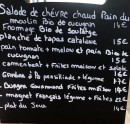 Salade de chèvre chaud Pain du
moulin Bio de cucugnan 14€
Fromage Bio de Soulatge
Planche de tapas catalane 15€
pain tomate + melon et pain Bio
cucugnan 15€
+ Frites maison + salade
16€
Gambas à la + légume
Burger Gourmand Frites maison
magret Français légume + Frites 22€
plat du Jour 14€